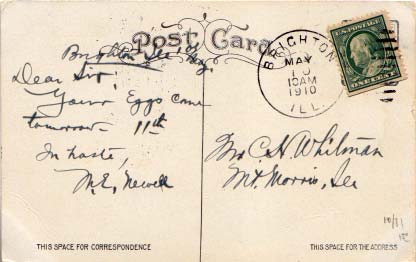 Post Card
Brighton Ill
Dear Sir,
Your Eggs come
tomorrow 11th
In haste,
M.E. Newell
BRIGHTON
MAY
10
10AM
1910
ILL.
U.S. POSTAGE
ONE CENT
Mr C. H. Whitman
Mt. Morris, Ill
THIS SPACE FOR CORRESPONDENCE
THIS SPACE FOR THE ADDRESS